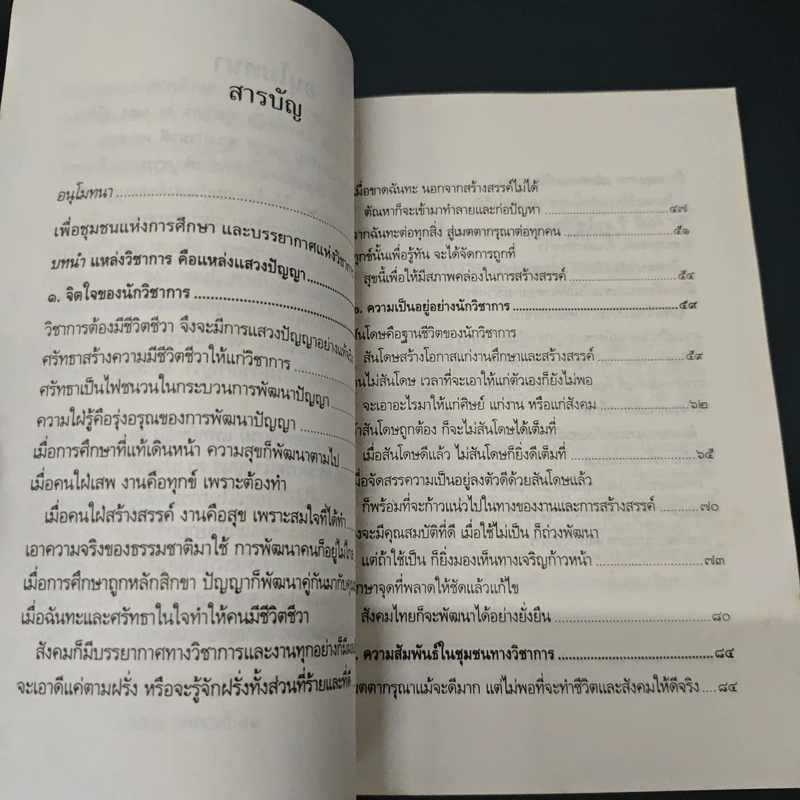 สารบัญ
อนุโมทนา
เพื่อชุมชนแห่งการศึกษา และบรรยากาศแห่งวิชาการ
บทนำ แหล่งวิชาการ คือแหล่งแสวงปัญญา
๑. จิตใจของนักวิชาการ
วิชาการต้องมีชีวิตชีวา จึงจะมีการแสวงปัญญาอย่าง
ศรัทธาสร้างความมีชีวิตชีวาให้แก่วิชาการ
ศรัทธาเป็นไฟชนวนในกระบวนการพัฒนาปัญญา
ความใฝ่รู้คือรุ่งอรุณของการพัฒนาปัญญา
เมื่อการศึกษาที่แท้เดินหน้า ความสุขก็พัฒนาตามไป
เมื่อคนใฝ่เสพ งานคือทุกข์ เพราะต้องทำ
เมื่อคนใฝ่สร้างสรรค์ งานคือสุข เพราะสมใจที่ได้ทำ
เอาความจริงของธรรมชาติมาใช้ การพัฒนาคนก็อยู่
เมื่อการศึกษาถูกหลักสิกขา ปัญญาก็พัฒนาคู่กันมากับ
เมื่อฉันทะและศรัทธาในใจทำให้คนมีชีวิตชีวา
สังคมก็มีบรรยากาศทางวิชาการและงานทุกอย่างก็มี
จะเอาดีแค่ตามฝรั่ง หรือจะรู้จักฝรั่งทั้งส่วนที่ร้ายและที่ดี
มื่อขาดฉันทะ นอกจากสร้างสรรค์ไม่ได้
ตัณหาก็จะเข้ามาทำลายและก่อปัญหา ๔๗
ากฉันทะต่อทุกสิ่ง สู่เมตตากรุณาต่อทุกคน ๕๑
ทุกข์นั้นเพื่อรู้ทัน จะได้จัดการถูกที่
สุขนี้เพื่อให้มีสภาพคล่องในการสร้างสรรค์ ๕๔
ความเป็นอยู่อย่างนักวิชาการ ๕๙
สันโดษคือฐานชีวิตของนักวิชาการ
สันโดษสร้างโอกาสแก่งานศึกษาและสร้างสรรค์ ๕๙
นไม่สันโดษ เวลาที่จะเอาให้แก่ตัวเองก็ยังไม่พอ
จะเอาอะไรมาให้แก่ศิษย์ แก่งาน หรือแก่สังคม ๖๒
าสันโดษถูกต้อง ก็จะไม่สันโดษได้เต็มที่
เมื่อสันโดษดีแล้ว ไม่สันโดษก็ยิ่งดีเต็มที่ ๖๕
มื่อจัดสรรความเป็นอยู่ลงตัวดีด้วยสันโดษแล้ว
ก็พร้อมที่จะก้าวแน่วไปในทางของงานและการสร้างสรรค์ ๗๐
งจะมีคุณสมบัติที่ดี เมื่อใช้ไม่เป็น ก็ถ่วงพัฒนา
แต่ถ้าใช้เป็น ก็ยิ่งมองเห็นทางเจริญก้าวหน้า ๗๓
กษาจุดที่พลาดให้ชัดแล้วแก้ไข
สังคมไทยก็จะพัฒนาได้อย่างยั่งยืน ๘๐
ความสัมพันธ์ในชุมชนทางวิชาการ ๘๔
มตตากรุณาแม้จะดีมาก แต่ไม่พอที่จะทำชีวิตและสังคมให้ดีจริง ๘๔